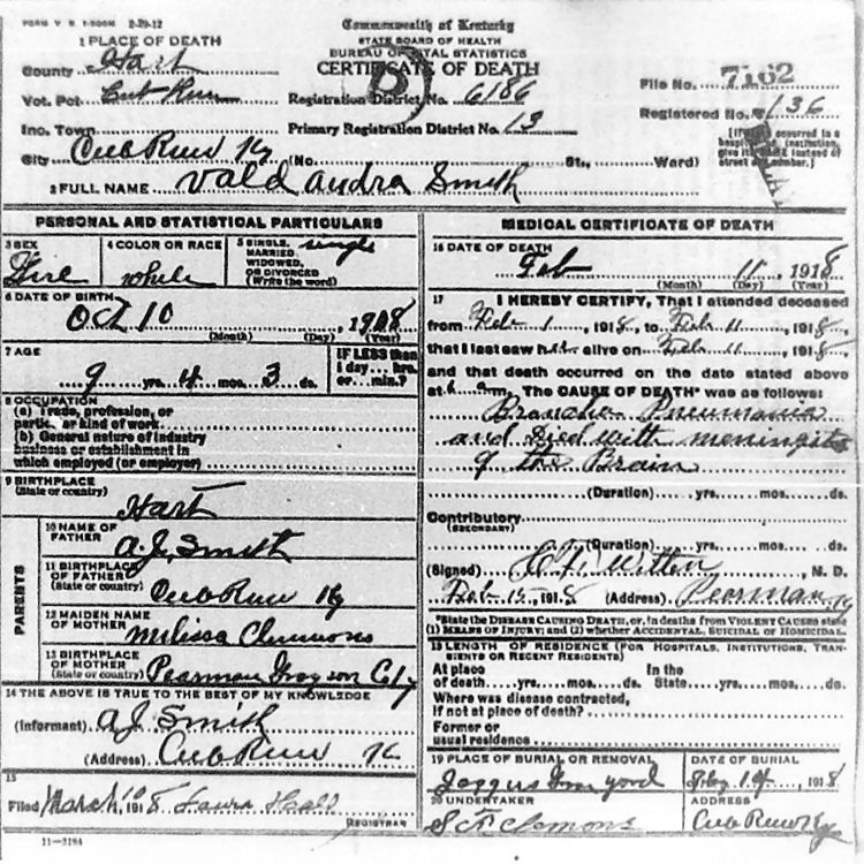 FORM V. S. 1-500M 2-29-12
Commonwealth of Kentucky
STATE BOARD OF HEALTH
BUREAU OF VITAL STATISTICS
CERTIFICATE OF DEATH
1 PLACE OF DEATH
County Hart
Vot. Pct. Cub Run
Registration District No. 6186
File No. 7162
Registered No. 136
Inc. Town
Primary Registration District No. 13
[If occurred in a hospital institution, give its NAME instead of street number.]
City Cub Run Ky (No. St., Ward)
2 FULL NAME Vald audra Smith
PERSONAL AND STATISTICAL PARTICULARS
3 SEX
4 COLOR OR RACE white
5 SINGLE, MARRIED, WIDOWED, OR DIVORCED (Write the word) single
6 DATE OF BIRTH
Oct 10, 1908
(Month) (Day) (Year)
7 AGE
9 yrs. 4 mos. 3 ds.
IF LESS than 1 day... hrs. or... min.?
8 OCCUPATION
(a) Trade, profession, or
particular kind of work
(b) General nature of industry
business or establishment in
which employed (or employer)
9 BIRTHPLACE
(State or country) Hart
PARENTS
10 NAME OF FATHER A.J. Smith
11 BIRTHPLACE OF FATHER (State or country) Cub Run Ky
12 MAIDEN NAME OF MOTHER Melissa Clemmons
13 BIRTHPLACE OF MOTHER (State or country) Pearman Grayson Co Ky
14 THE ABOVE IS TRUE TO THE BEST OF MY KNOWLEDGE
(Informant) AJ Smith
(Address) Cub Run Ky
15
Filed March 1918 Laura
REGISTRAR
11-3184
MEDICAL CERTIFICATE OF DEATH
16 DATE OF DEATH
Feb 11, 1918
(Month) (Day) (Year)
17 I HEREBY CERTIFY, That I attended deceased
from Feb 1, 1918, to Feb 11, 1918,
that I last saw her alive on Feb 11, 1918,
and that death occurred on the date stated above
at 6 a m. The CAUSE OF DEATH* was as follows:
Broncho Pneumonia
and Died with meningitis
of the Brain
(Duration) yrs. mos. ds.
Contributory
(SECONDARY)
(Duration) yrs. mos. ds.
(Signed) Witten, M. D.
Feb 15, 1918 (Address) Pearman Ky
*State the DISEASE CAUSING DEATH, or, in deaths from VIOLENT CAUSES state
(1) MEANS OF INJURY; and (2) whether ACCIDENTAL, SUICIDAL or HOMICIDAL.
18 LENGTH OF RESIDENCE (FOR HOSPITALS, INSTITUTIONS, TRANSIENTS OR RECENT RESIDENTS)
At place of death yrs. mos. ds. In the State yrs. mos. ds.
Where was disease contracted,
if not at place of death?
Former or
usual residence
19 PLACE OF BURIAL OR REMOVAL
Jaggers yard
DATE OF BURIAL
1918
20 UNDERTAKER
Clemons
ADDRESS
Cub Run Ky